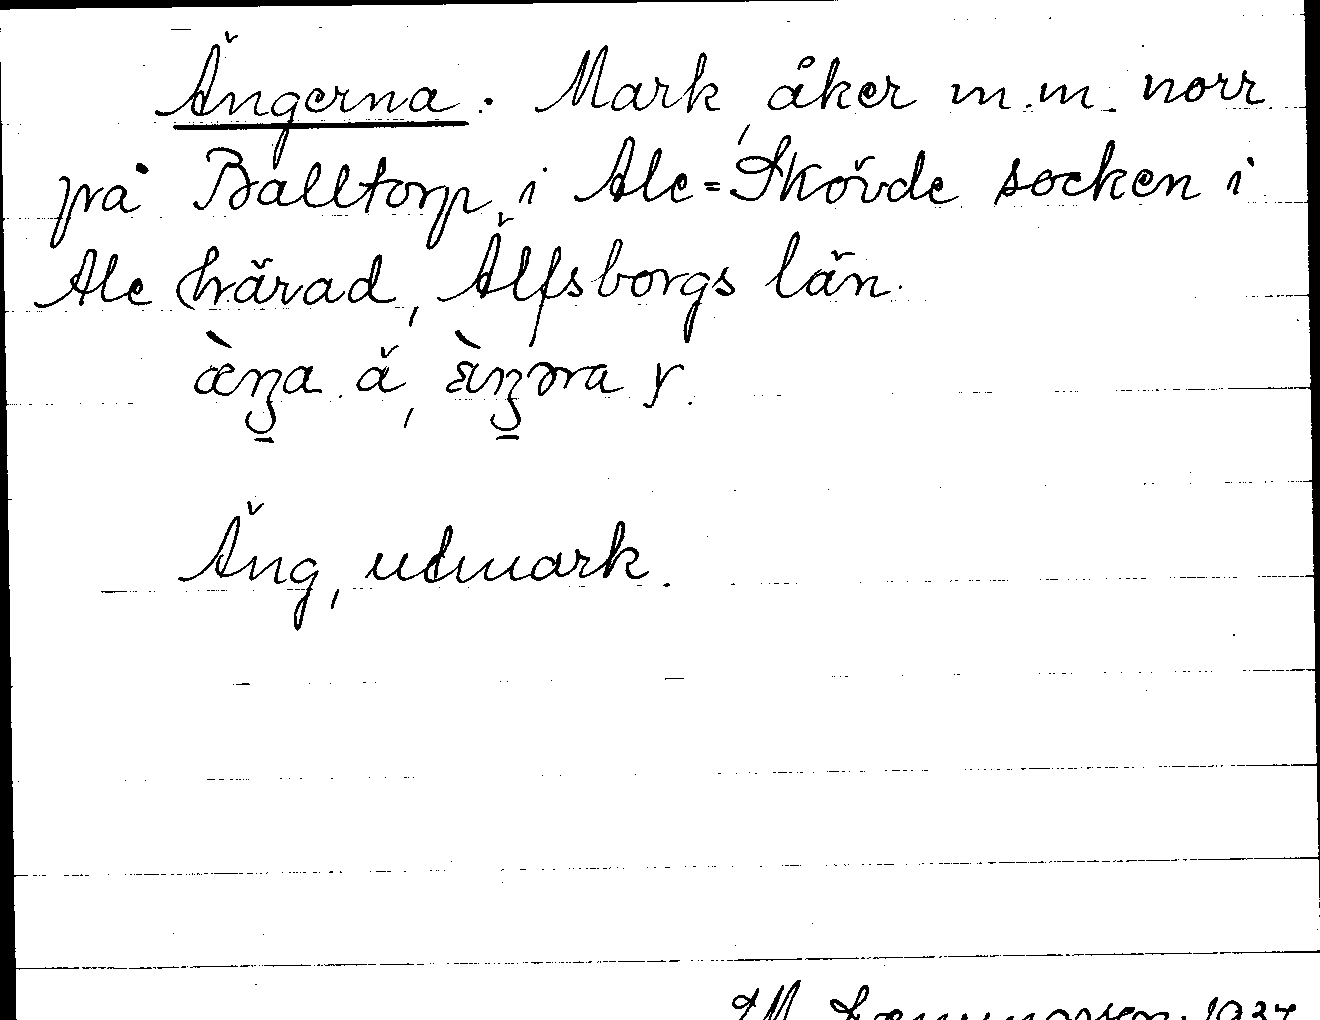 Ängerna. Mark, åker m.m. norr
på Balltorp, i Ale=Skövde socken i
Ale härad, Älfsborgs län.
ä̀ŋa ä, ɛ̀ŋəra y.
Äng, utmark.
1937